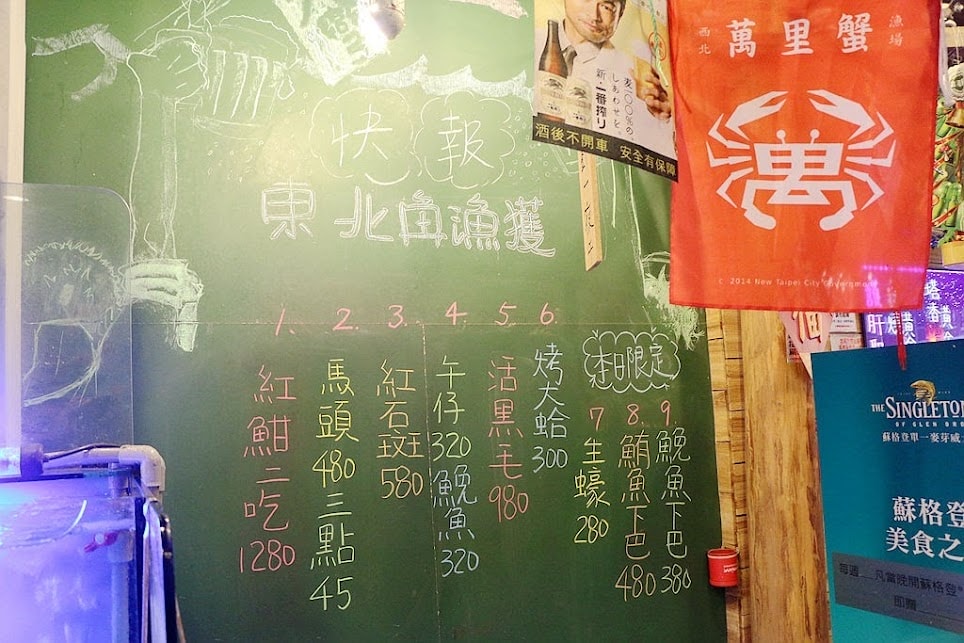 快報
東北角漁獲
1.
紅魽二吃
1280
2.
馬頭
480
三點
45
3.
紅石斑
580
4.
午仔
320
鮸魚
320
5.
活黑毛
980
6.
烤大蛤
300
本日限定
7
生蠔
280
8.
鮪魚下巴
480
9.
鮸魚下巴
380
麦100%の、
しあわせを。
新・一番搾り
酒後不開車 安全有保障
西北
萬里蟹
漁場
萬
© 2014 New Taipei City Government
THE SINGLETON
OF GLEN
蘇格登單一麥芽威
蘇格登
美食之
每週
凡當晚開蘇格登
即贈